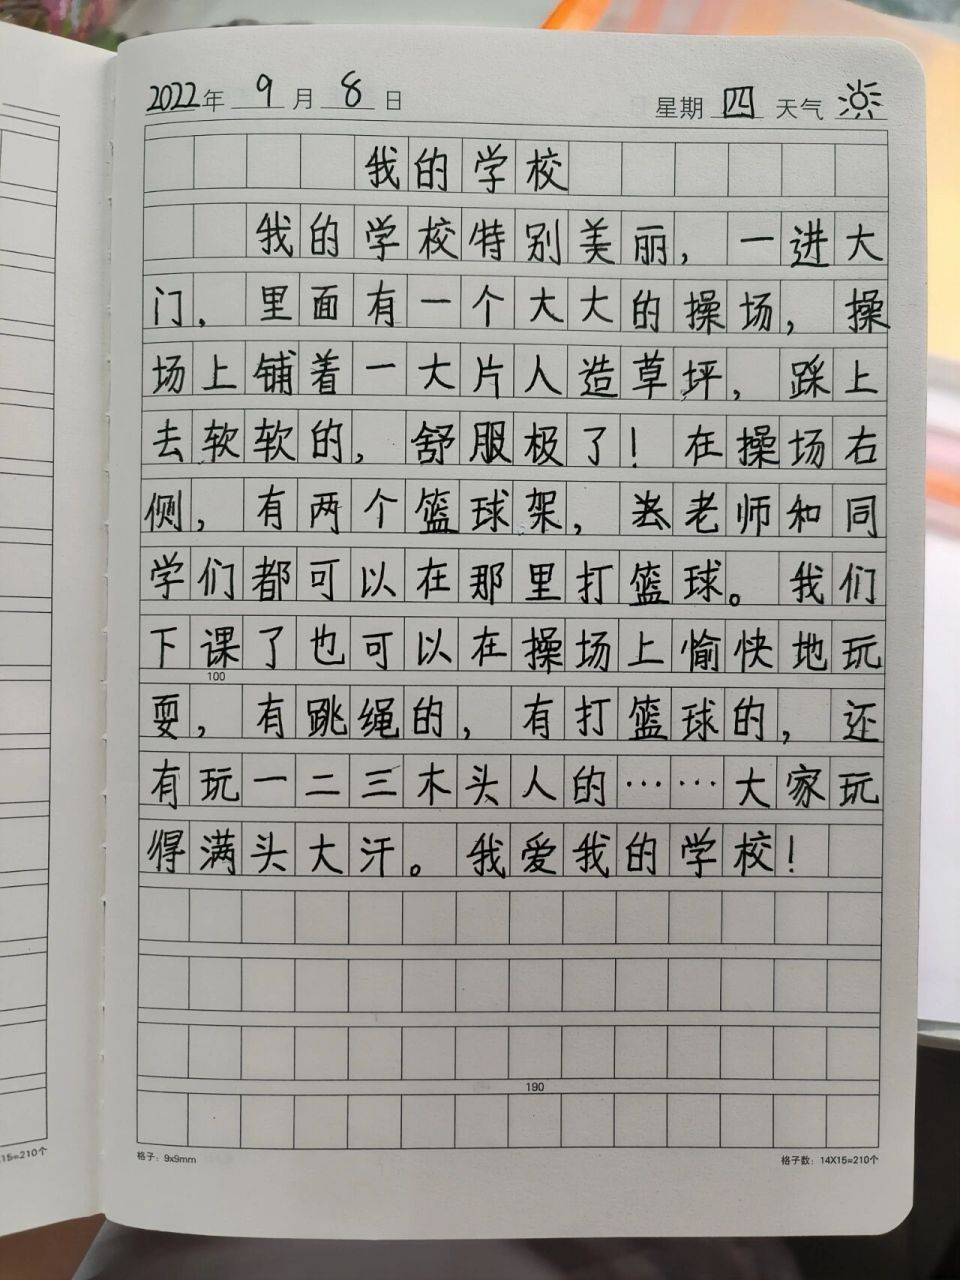 2022年 9 月 8 日 星期 四 天气
我的学校
我的学校特别美丽，一进大
门，里面有一个大大的操场，操
场上铺着一大片人造草坪，踩上
去软软的，舒服极了！在操场右
侧，有两个篮球架，老师和同
学们都可以在那里打篮球。我们
下课了也可以在操场上愉快地玩
100
耍，有跳绳的，有打篮球的，还
有玩一二三木头人的……大家玩
得满头大汗。我爱我的学校！
190
格子：9x9mm 格子数：14X15=210个
15=210个